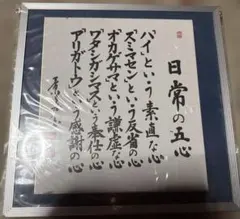 日常の五心
ハイという素直な心
スミマセンという反省の心
オカゲサマという謙虚な心
ワタシガシマスという奉仕の心
アリガトウという感謝の心